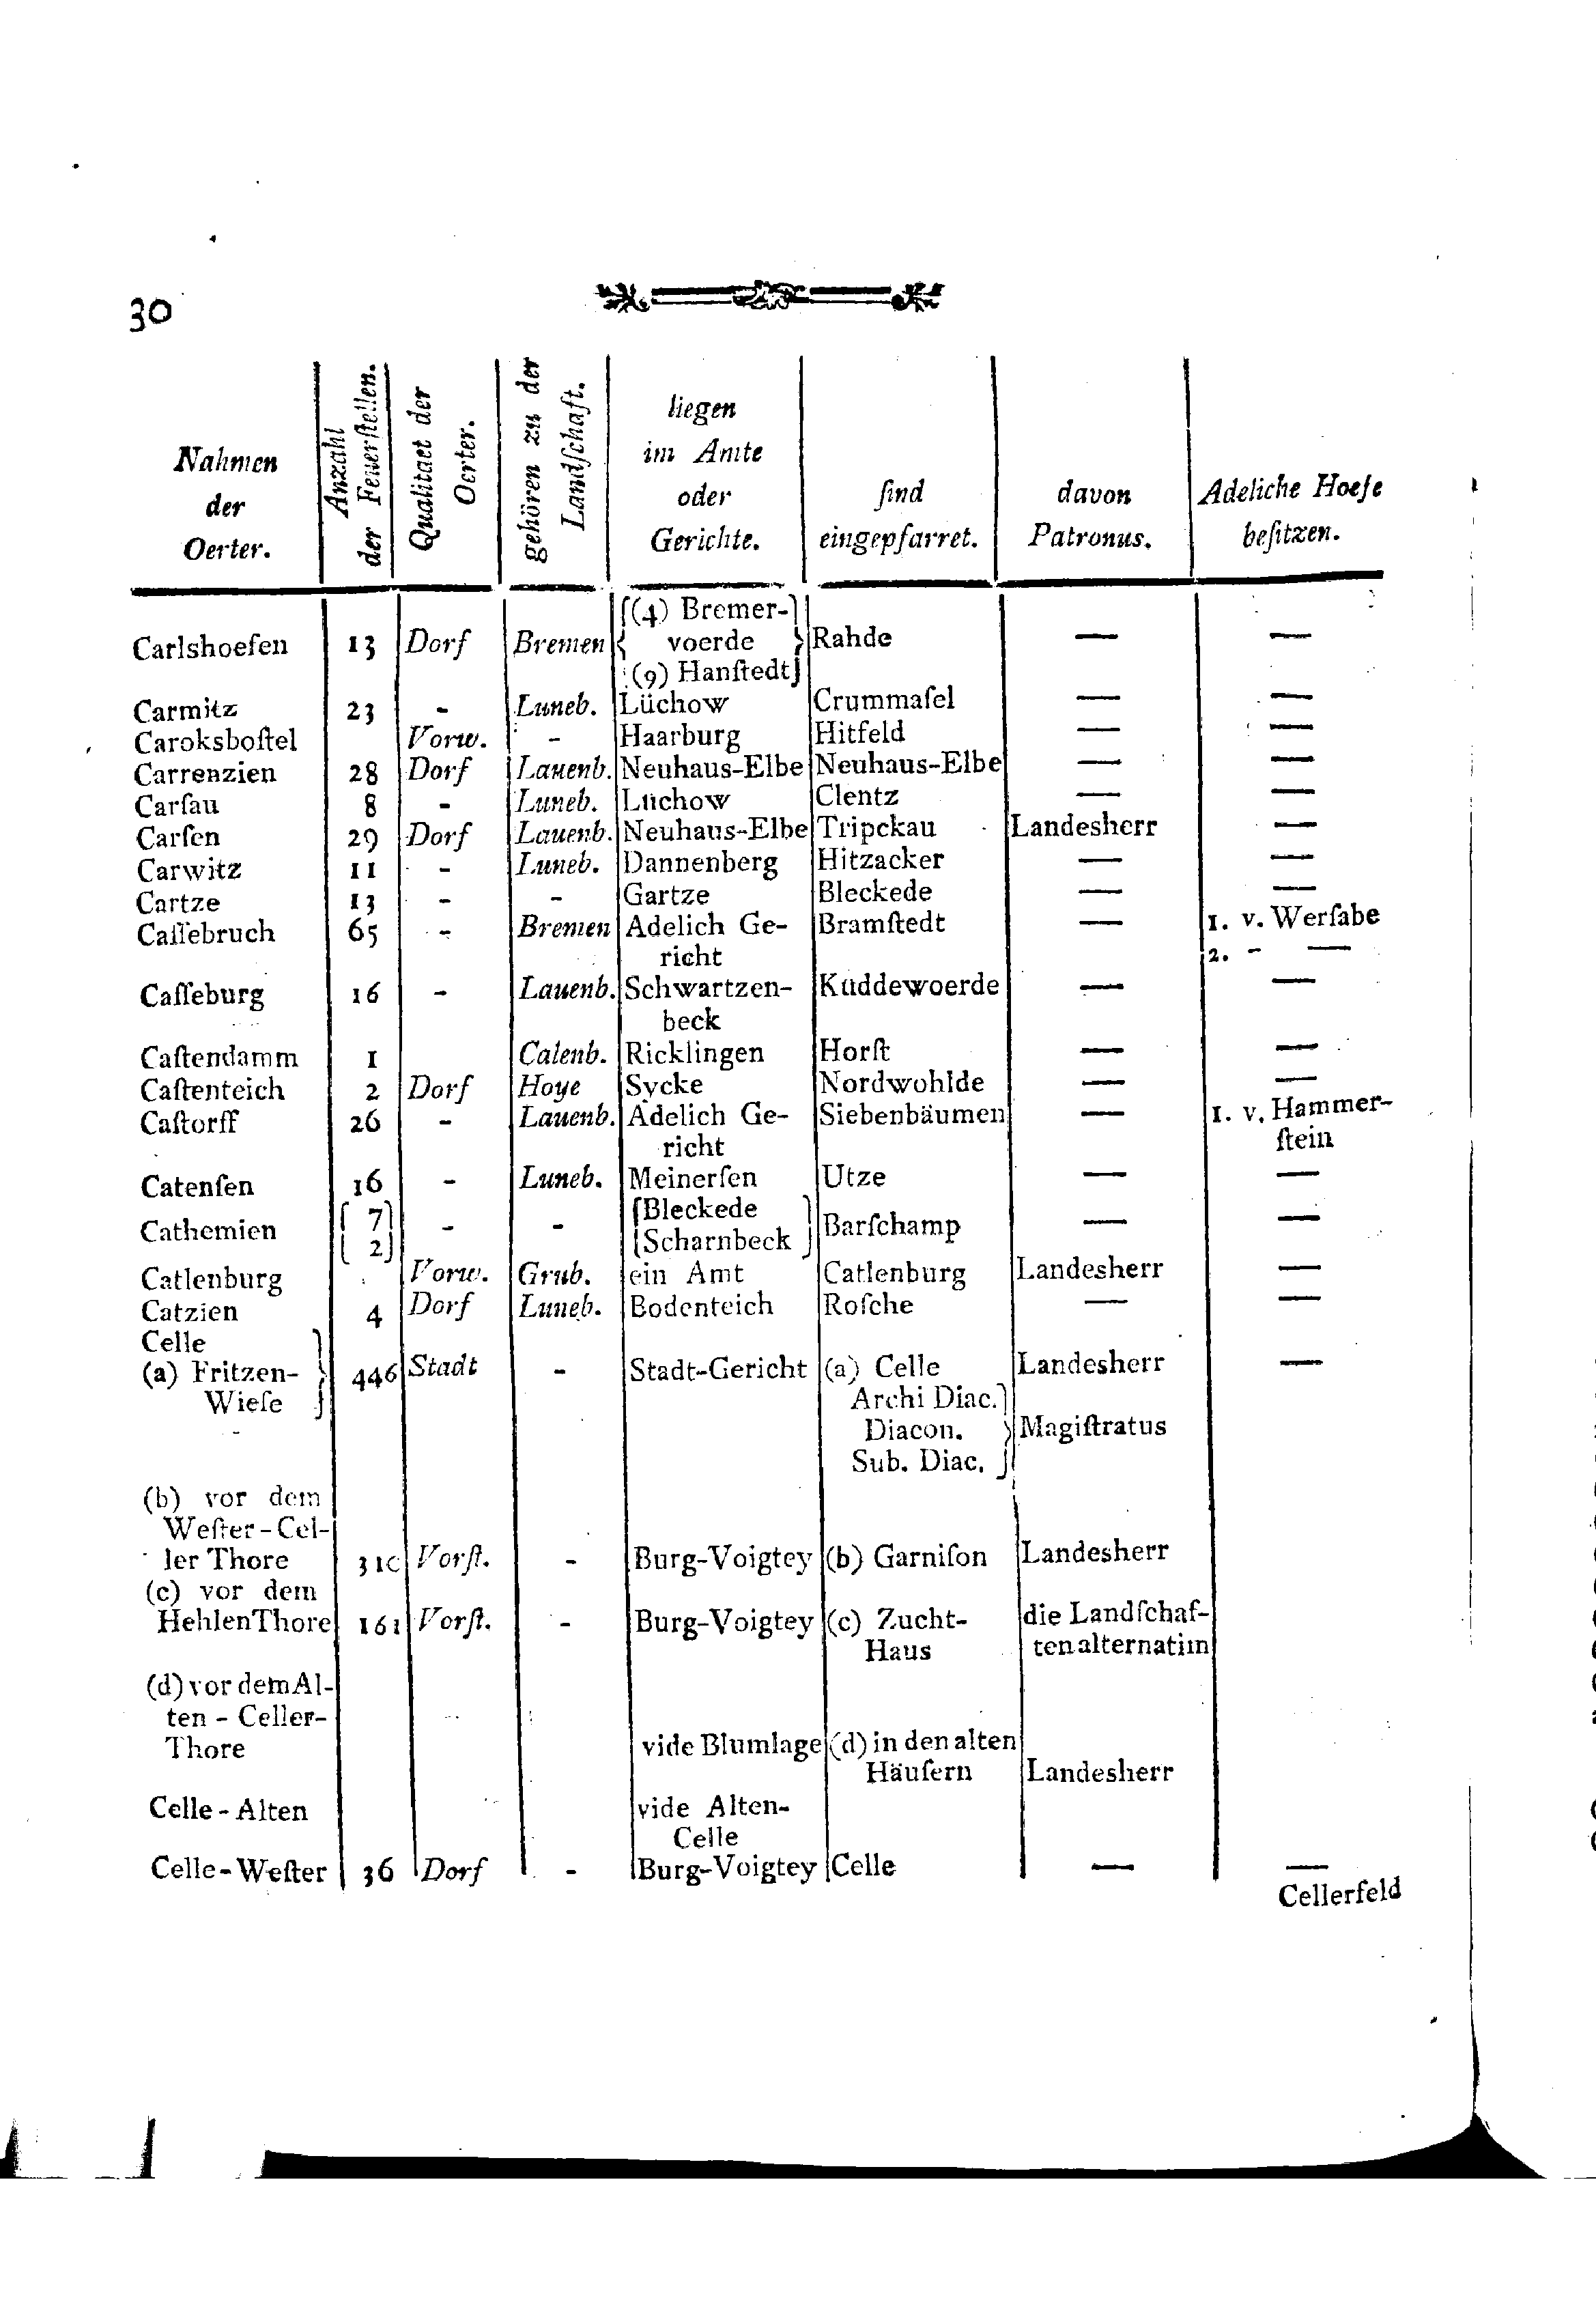 30
Nahmen der Oerter. | Anzahl der Feuerſtellen. | Qualitaet der Oerter. | gehören zu der Landſchaft. | liegen im Amte oder Gerichte. | ſind eingepfarret. | davon Patronus. | Adeliche Hoefe beſitzen.
(4) Bremer-
Carlshoefen 13 Dorf Bremen voerde Rahde — —
(9) Hanſtedt
Carmitz 23 - Luneb. Lüchow Crummaſel — —
Caroksboſtel Vorw. - Haarburg Hitfeld — —
Carrenzien 28 Dorf Lauenb. Neuhaus-Elbe Neuhaus-Elbe — —
Carſau 8 - Luneb. Lüchow Clentz — —
Carſen 29 Dorf Lauenb. Neuhaus-Elbe Tripckau Landesherr —
Carwitz 11 - Luneb. Dannenberg Hitzacker — —
Cartze 13 - - Gartze Bleckede — —
Caſſebruch 65 - Bremen Adelich Ge- Bramſtedt — 1. v. Werſabe
richt 2. - —
Caſſeburg 16 - Lauenb. Schwartzen- Küddewoerde — —
beck
Caſtendamm 1 Calenb. Ricklingen Horſt — —
Caſtenteich 2 Dorf Hoye Sycke Nordwohlde — —
Caſtorff 26 - Lauenb. Adelich Ge- Siebenbäumen — 1. v. Hammer-
richt ſtein
Catenſen 16 - Luneb. Meinerſen Utze — —
7 Bleckede
Cathemien - - Barſchamp — —
2 Scharnbeck
Catlenburg Vorw. Grub. ein Amt Catlenburg Landesherr —
Catzien 4 Dorf Luneb. Bodenteich Roſche — —
Celle
(a) Fritzen- 446 Stadt - Stadt-Gericht (a) Celle Landesherr —
Wieſe Archi Diac.
Diacon. Magiſtratus
Sub. Diac.
(b) vor dem
Weſter-Cel-
ler Thore 310 Vorſt. - Burg-Voigtey (b) Garniſon Landesherr
(c) vor dem
Hehlen Thore 161 Vorſt. - Burg-Voigtey (c) Zucht- die Landſchaf-
Haus ten alternatim
(d) vor dem Al-
ten - Celler-
Thore vide Blumlage (d) in den alten
Häuſern Landesherr
Celle - Alten vide Alten-
Celle
Celle - Weſter 36 Dorf - Burg-Voigtey Celle — —
Cellerfeld